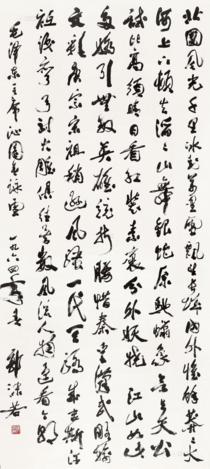 北國風光千里冰封萬里雪飄望長城內外惟餘莽莽大
河上下頓失滔滔山舞銀蛇原馳蠟象欲與天公
試比高須晴日看紅裝素裹分外妖嬈江山如此
多嬌引無數英雄競折腰惜秦皇漢武略輸
文彩唐宗宋祖稍遜風騷一代天驕成吉思汗
只識彎弓射大雕俱往矣數風流人物還看今朝
毛澤東主席沁園春詠雪
一九六四年春 郭沫若